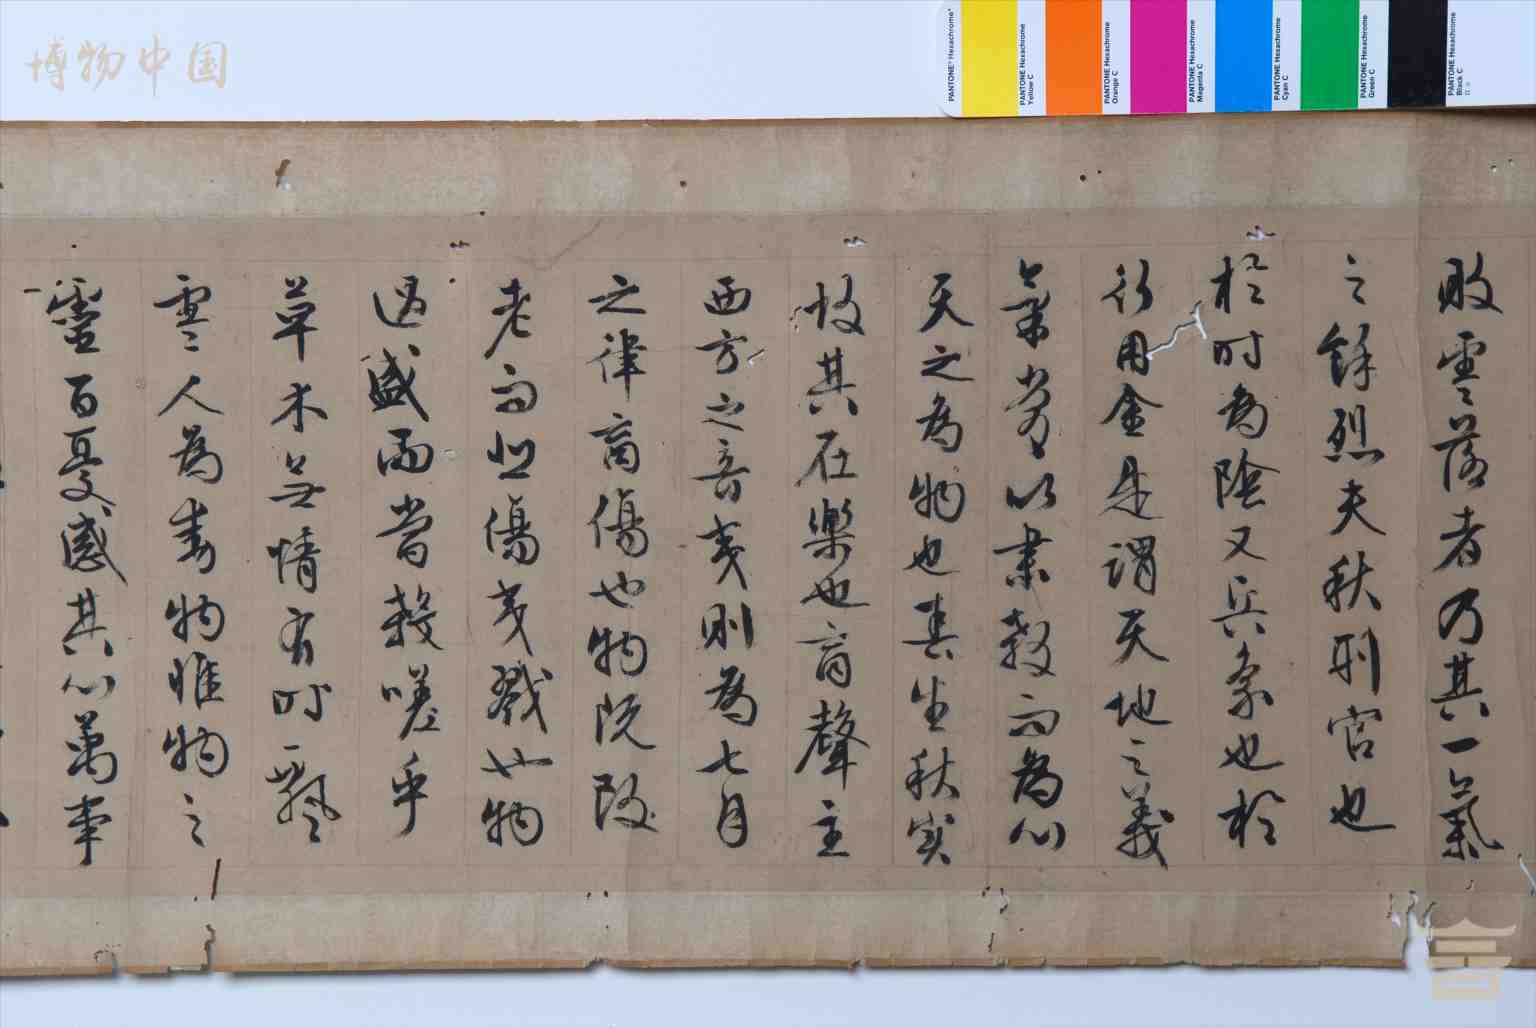 博物中国
PANTONE® Hexachrome®
PANTONE Hexachrome
Yellow C
PANTONE Hexachrome
Orange C
PANTONE Hexachrome
Magenta C
PANTONE Hexachrome
Cyan C
PANTONE Hexachrome
Green C
PANTONE Hexachrome
Black C
敗零落者乃其一氣
之餘烈夫秋刑官也
於时為陰又兵象也於
行用金是謂天地之義
氣常以肅殺而為心
天之為物也春生秋实
故其在樂也商聲主
西方之音夷則為七月
之律商傷也物既
老而悲傷夷戮也物
過盛而當殺嗟乎
草木無情有时飄
零人為動物惟物之
靈百憂感其心萬事